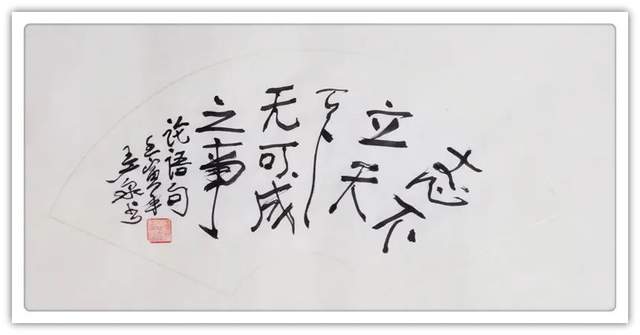 志不
立天
下
无可成
之事
论语句
壬寅年
书